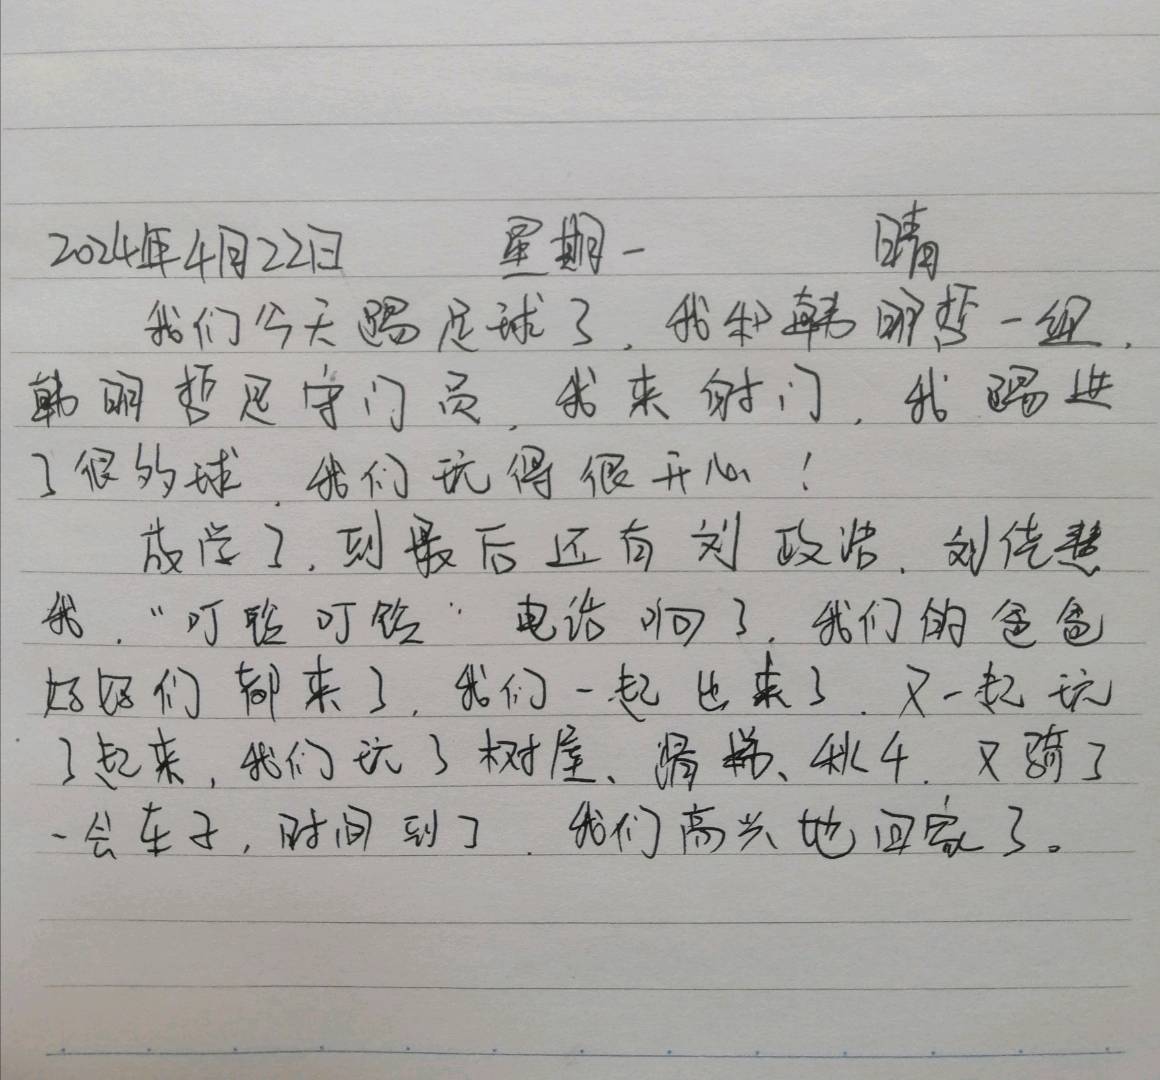 2024年4月22日 星期一 晴
我们今天踢足球了，我和韩明哲一组，
韩明哲是守门员，我来射门，我踢进
了很多球，我们玩得很开心！
放学了，到最后还有刘政浩、刘佳慧
我，“叮铃叮铃”电话响了，我们的爸爸
妈妈们都来了，我们一起出来了，又一起玩
了起来，我们玩了树屋、滑梯、秋千，又骑了
一会车子，时间到了，我们高兴地回家了。